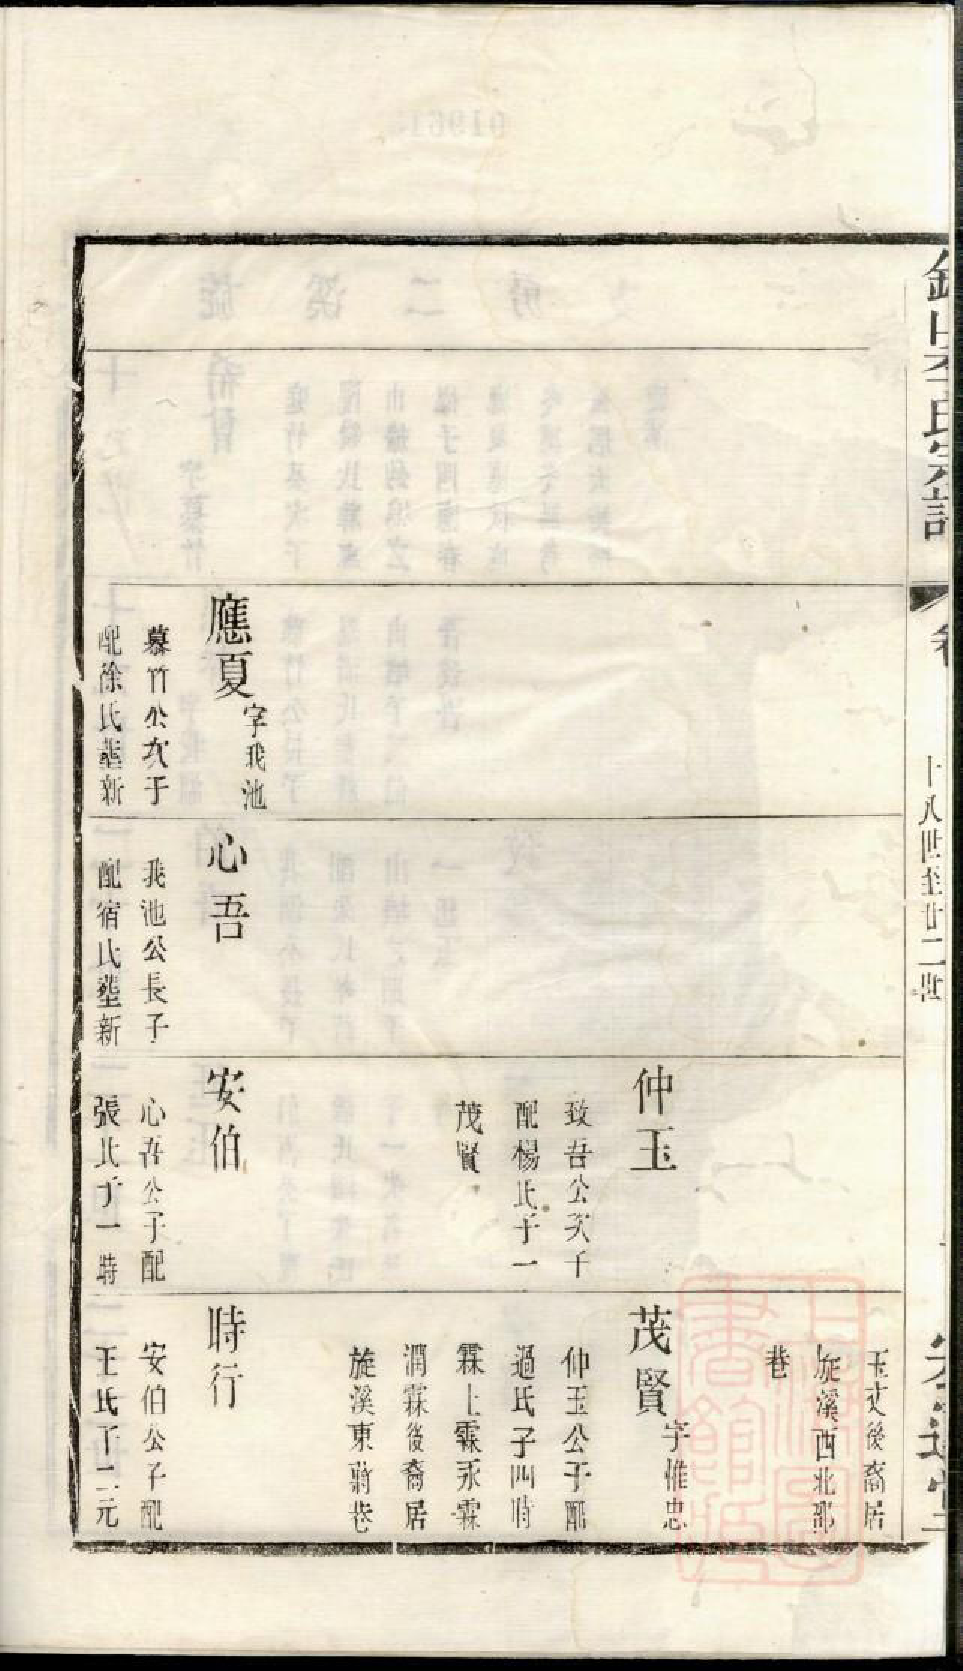 十八世至廿二世
應夏字我池
慕竹公次子
配徐氏塟新
心吾
我池公長子
配宿氏塟新
仲玉
致吾公次子
配楊氏子一
茂賢
安伯
心吾公子配
張氏子一時
玉文後裔居
旋溪西北部
巷
茂賢字惟忠
仲玉公子配
過氏子四時
霖上霖永霖
潤霖後裔居
旋溪東蔣巷
時行
安伯公子配
王氏子二元